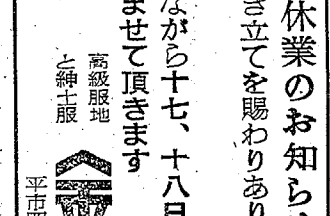 休業のお知ら
き立てを賜わりあり
ながら十七、十八日
ませて頂きます
高級服地
と紳士服
平市